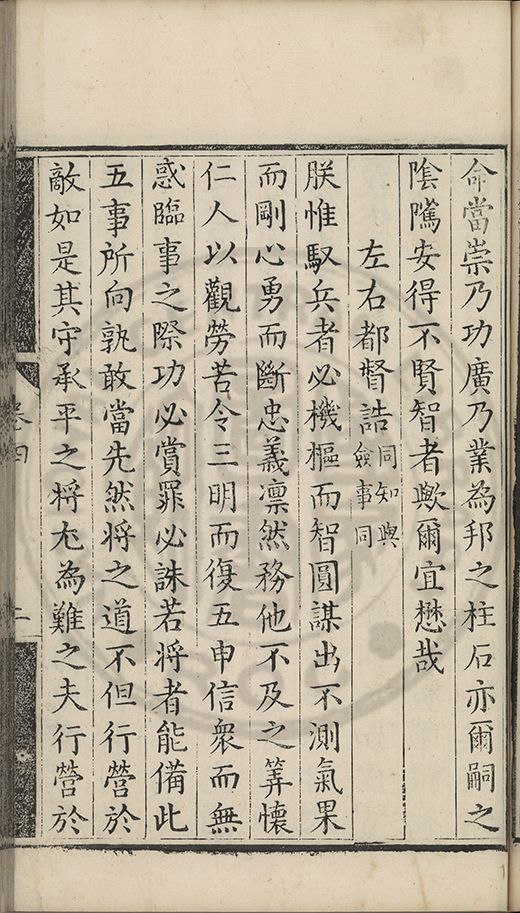 命當崇乃功廣乃業為邦之柱石亦爾嗣之
陰隲安得不賢智者歟爾宜懋哉
左右都督誥同知與僉事同
朕惟馭兵者必機樞而智圓謀出不測氣果
而剛心勇而斷忠義凛然務他不及之筭懷
仁人以觀勞苦令三明而復五申信衆而無
惑臨事之際功必賞罪必誅若將者能備此
五事所向孰敢當先然將之道不但行營於
敵如是其守承平之将尤為難之夫行營於
卷四
二